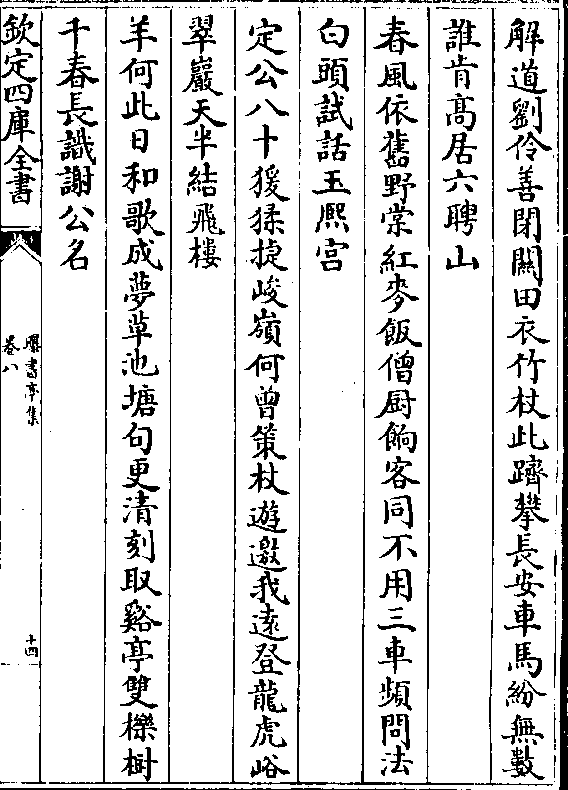 解道劉伶善閉關田衣竹杖此躋攀長安車馬紛無數
誰肯高居六聘山
春風依舊野棠紅麥飯僧厨餉客同不用三車頻問法
白頭試話玉熈宫
定公八十猨猱捷峻嶺何曾策杖遊邀我遠登龍虎峪
翠巖天半結飛樓
羊何此日和歌成夢草池塘句更清刻取谿亭雙櫟樹
千春長識謝公名
欽定四庫全書
曝書亭集
卷八
十四